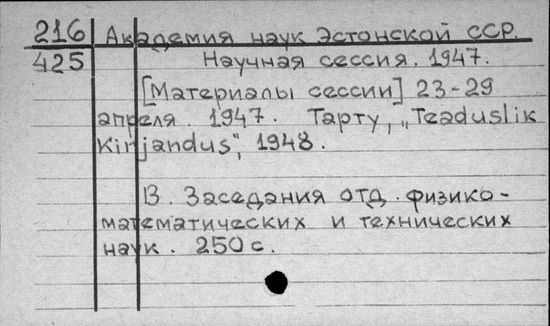 216 Академия наук Эстонской ССР.
425 Научная сессия. 1947.
[Материалы сессии] 23-29
апреля. 1947. Тарту, „Teaduslik
Kirjandus", 1948.
В. Заседания отд. физико-
математических и технических
наук. 250 с.